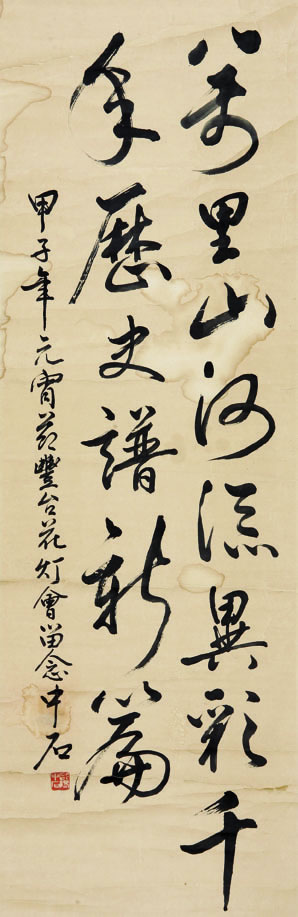 万里山河添異彩千
年歷史譜新篇
甲子年元宵节豐台花灯會留念中石